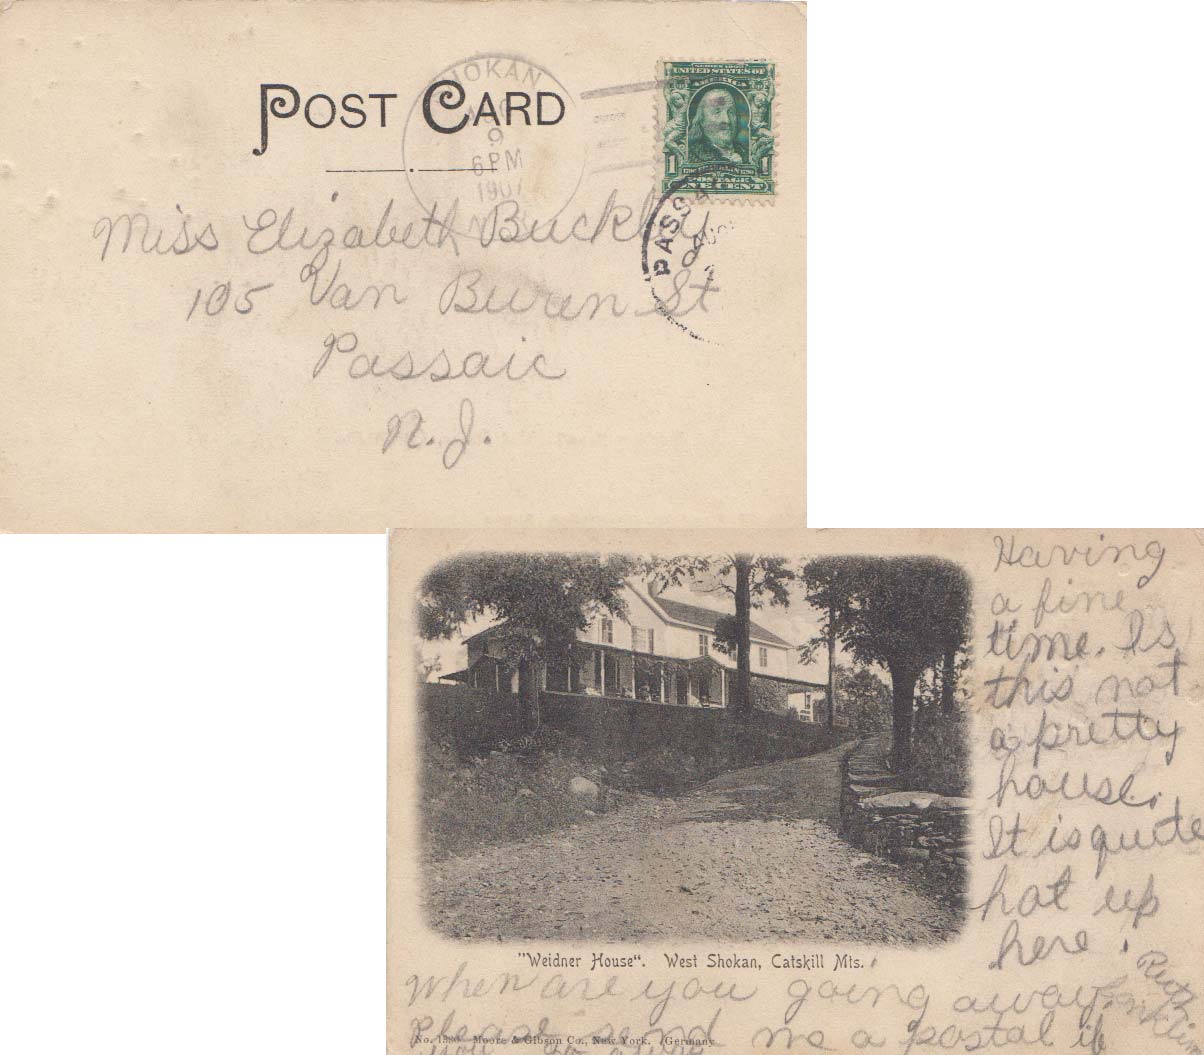 POST CARD
SHOKAN
AUG
9
6 PM
1907
N.Y.
SERIES 1902
UNITED STATES OF
AMERICA
1 1
POSTAGE
ONE CENT
PASSA
AUG
Miss Elizabeth Buckley
105 Van Buren St
Passaic
N.J.
Having
a fine
time. Is
this not
a pretty
house.
It is quite
hot up
here.
Ruth
"Weidner House". West Shokan, Catskill Mts.
When are you going away.
Please send me a postal if
No. 1580 Moore & Gibson Co., New York. Germany
you